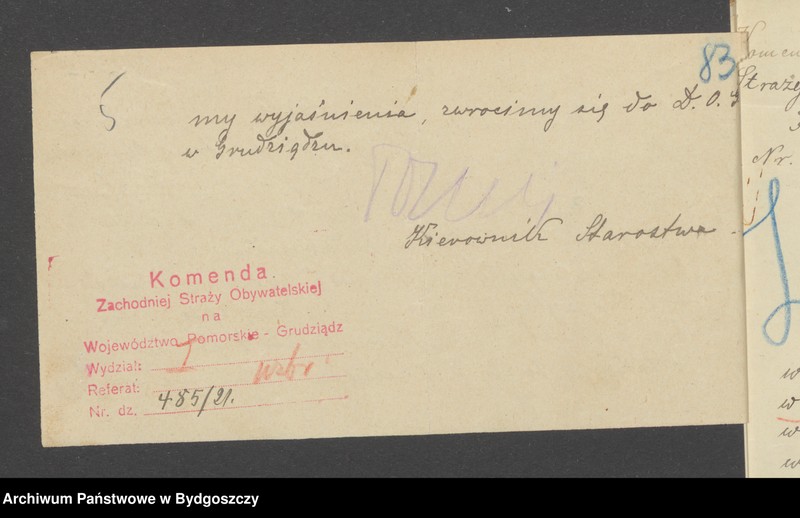 83
my wyjaśnienia, zwrocimy się do D. O.
w Grudziądzu.
Kierownik Starostwa
Komenda
Zachodniej Straży Obywatelskiej
na
Województwo Pomorskie - Grudziądz
Wydział: I
Referat:
Nr. dz. 485/21.
Nr.
w
w
w
w
Archiwum Państwowe w Bydgoszczy